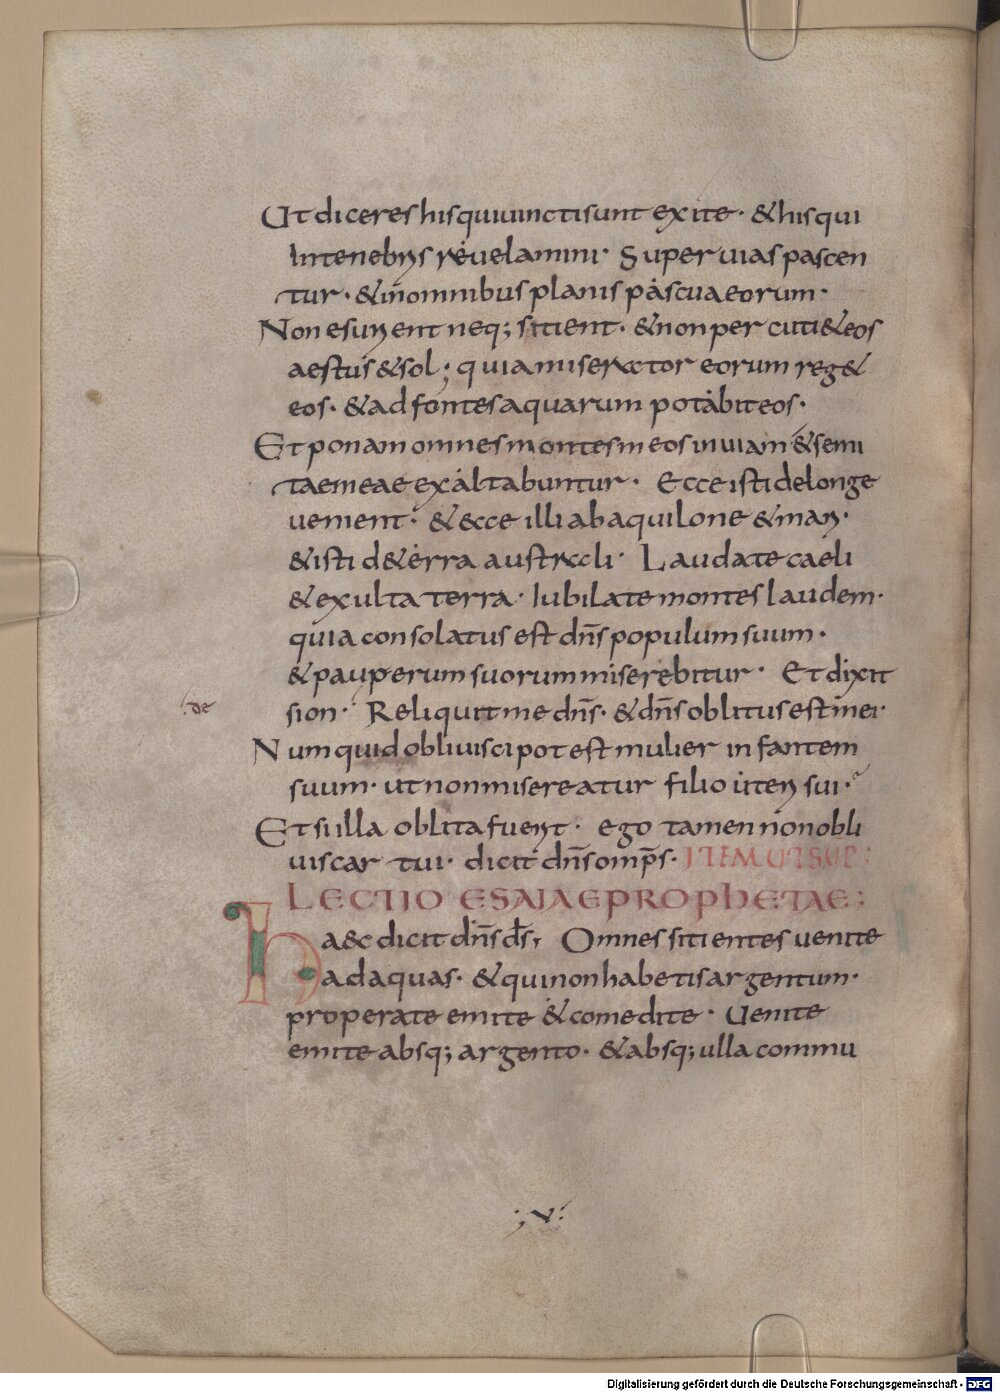 Ut diceres his qui uincti sunt exite· & his qui
In tenebris reuelamini· Super uias pascen
tur· & in omnibus planis pascua eorum·
Non esurient neq; sitient· & non percuti& eos
aestus & sol; quia miserator eorum reg&
eos· & ad fontes aquarum potabit eos·
Et ponam omnes montes meos in uiam & semi
tae meae exaltabuntur· Ecce isti de longe
uenient· & ecce illi ab aquilone & mari·
& isti d& erra australi· Laudate caeli
& exulta terra· Iubilate montes laudem·
quia consolatus est dn̄s populum suum·
& pauperum suorum miserebitur· Et dixit
sion· Reliquit me dn̄s· & dn̄s oblitus est mei·
Numquid obliuisci potest mulier infantem
suum· ut non misereatur filio uteri sui·
Et si illa oblita fuerit· ego tamen non obli
uiscar tui· dicit dn̄s omp̄s· ITEM UT SUP:
LECTIO ESAIAE PROPHETAE:
Haec dicit dn̄s d̄s, Omnes sitientes uenite
ad aquas· & qui non habetis argentum·
properate emite & comedite· Uenite
emite absq; argento· & absq; ulla commu
:de
;V:
Digitalisierung gefördert durch die Deutsche Forschungsgemeinschaft - DFG